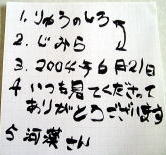 1. りゅうのしろ
2. じみら
3. 2004年6月21日
4 いつも見てくださって
ありがとうございます
5 河漢さん